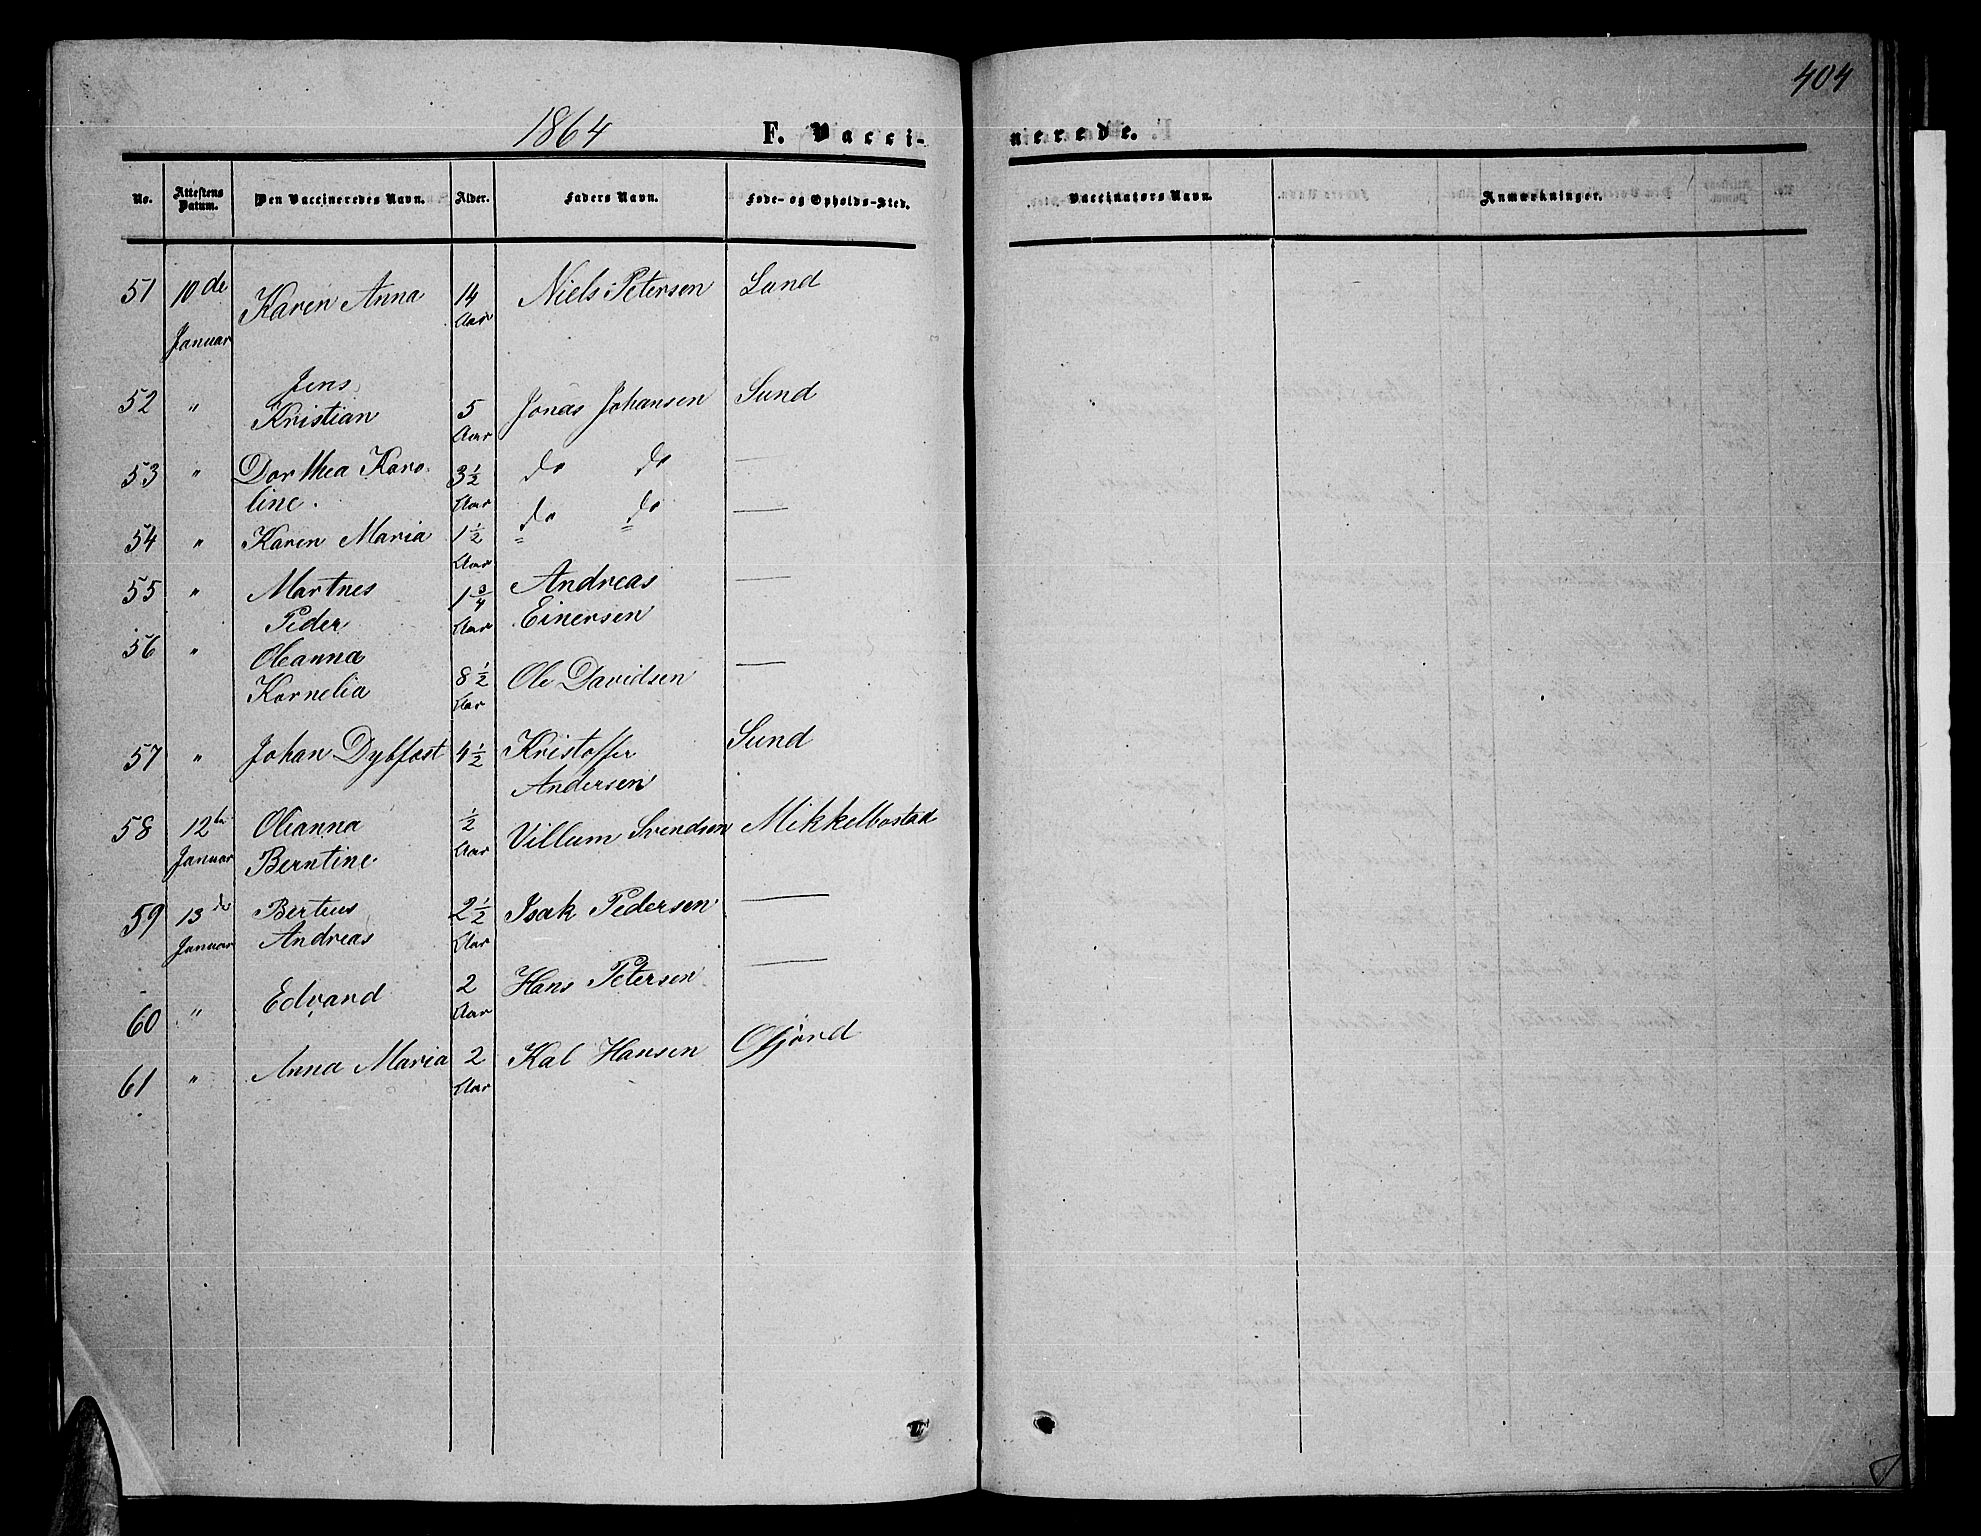 404
1864 F. Vacci-
nerede.
No. Attestens Datum. Den Vaccineredes Navn. Alder. Faders Navn. Føde- og Opholds-Sted. Vaccinators Navn. Anmærkninger.
51 10de Karen Anna 14 Niels Petersen Sund
Januar Aar
Jens
52 " Kristian 5 Jonas Johansen Sund
Aar
53 " Dorthea Karo- 3 1/2 do do —
line. Aar
54 " Karen Maria 1 1/2 do do —
Aar
55 " Martnes 1 3/4 Andreas —
Peder Aar Einersen
56 " Oleanna
Kornelia 8 1/2 Ole Davidsen —
Aar
57 " Johan Dybfest 4 1/2 Kristoffer Sund
Andersen
58 12te Oleanna 1/2 Villum Svendsen Mikkelbostad
Januar Berntine Aar
59 13de Berteus 2 1/2 Isak Pedersen —
Januar Andreas Aar
60 " Edvard 2 Hans Petersen —
Aar
61 " Anna Maria 2 Kal Hansen
Aar